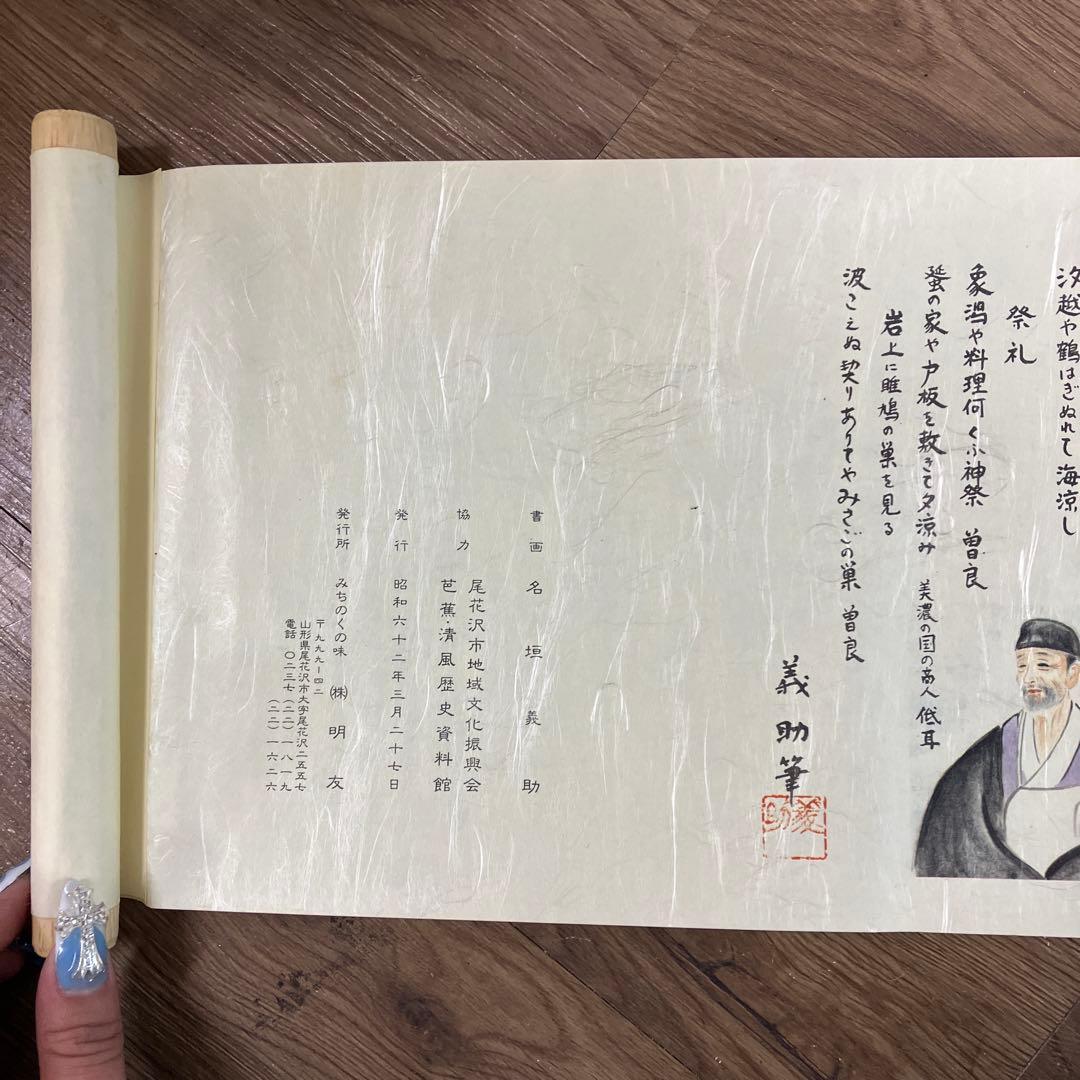 汐越や鶴はぎぬれて海涼し
祭礼
象潟や料理何くふ神祭 曽良
蜑の家や戸板を敷きて夕涼み 美濃の国の商人 低耳
岩上に雎鳩の巣を見る
波こえぬ契りありてやみさごの巣 曽良
義助筆
義助
書画 名垣義助
協力 尾花沢市地域文化振興会
芭蕉・清風歴史資料館
発行 昭和六十二年三月二十七日
発行所 みちのくの味 ㈱明友
〒九九九-四二
山形県尾花沢市大字尾花沢二五五七
電話 〇二三七(二二)一八一九
(二二)一六二六